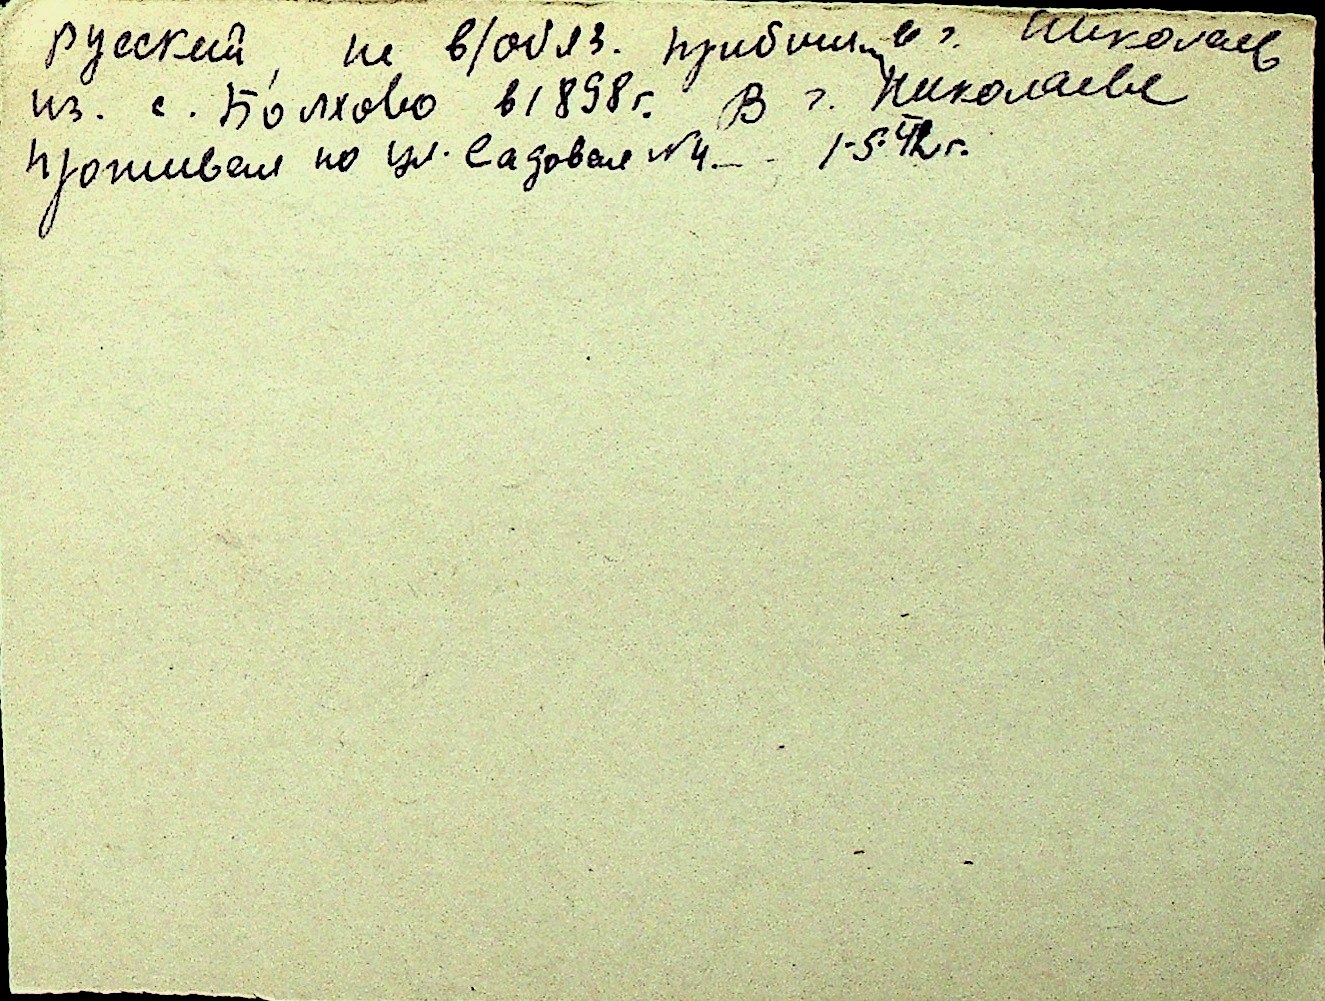 Русский, не в/обяз. прибыл в г. Николаев
из. с. Болхово в 1898 г. В г. Николаеве
проживал по ул. Садовая №4. 1-5-42 г.